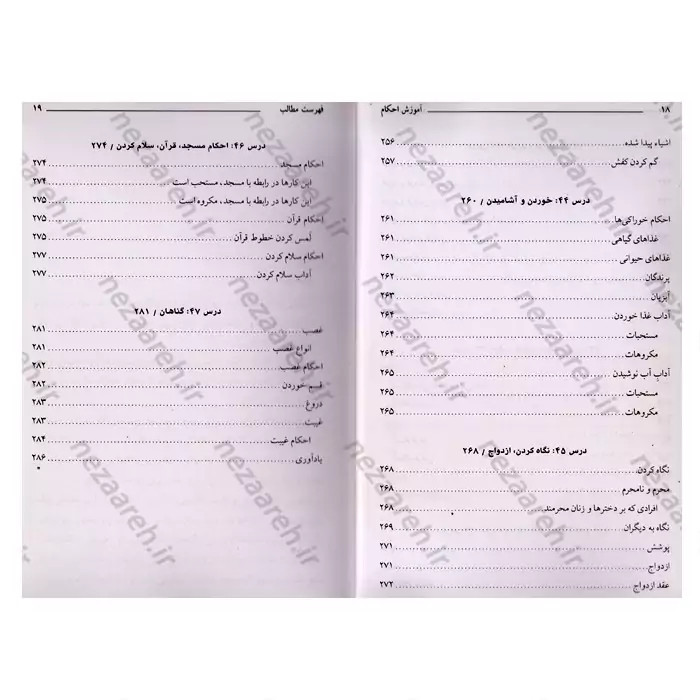 ۱۸ آموزش احکام
اشیاء پیدا شده ۲۵۶
گم کردن کفش ۲۵۷
درس ۴۴: خوردن و آشامیدن / ۲۶۰
احکام خوراکی‌ها ۲۶۱
غذاهای گیاهی ۲۶۱
غذاهای حیوانی ۲۶۱
پرندگان ۲۶۲
آبزیان ۲۶۳
آداب غذا خوردن ۲۶۴
مستحبات ۲۶۴
مکروهات ۲۶۴
آداب آب نوشیدن ۲۶۵
مستحبات ۲۶۵
مکروهات ۲۶۵
درس ۴۵: نگاه کردن، ازدواج / ۲۶۸
نگاه کردن ۲۶۸
محرم و نامحرم ۲۶۸
افرادی که بر دخترها و زنان محرمند ۲۶۸
نگاه به دیگران ۲۶۹
پوشش ۲۷۱
ازدواج ۲۷۱
عقد ازدواج ۲۷۲
فهرست مطالب ۱۹
درس ۴۶: احکام مسجد، قرآن، سلام کردن / ۲۷۴
احکام مسجد ۲۷۴
این کارها در رابطه با مسجد، مستحب است ۲۷۴
این کارها در رابطه با مسجد، مکروه است ۲۷۵
احکام قرآن ۲۷۵
لمس کردن خطوط قرآن ۲۷۵
احکام سلام کردن ۲۷۷
آداب سلام کردن ۲۷۷
درس ۴۷: گناهان / ۲۸۱
غصب ۲۸۱
انواع غصب ۲۸۱
احکام غصب ۲۸۲
قسم خوردن ۲۸۲
دروغ ۲۸۳
غیبت ۲۸۳
احکام غیبت ۲۸۴
یادآوری ۲۸۶
nezaareh.ir